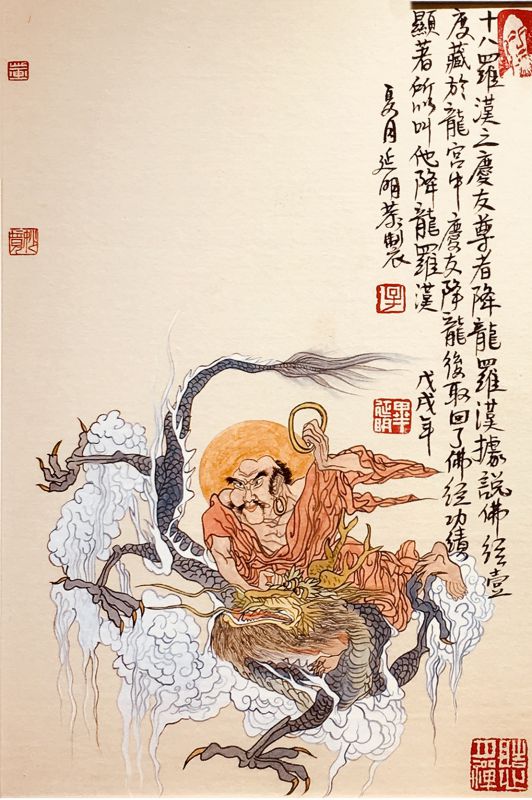 十八羅漢之慶友尊者降龍羅漢據説佛經壹
度藏於龍宮中慶友降龍後取回了佛經功績
顯著所以叫他降龍羅漢 戊戌年
夏月延明恭製